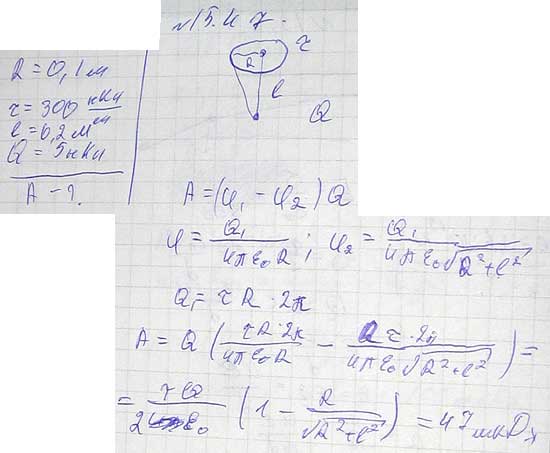 №15.47.
R = 0,1 м
τ = 300 нКл/м
l = 0,2 м
Q = 5 нКл
A - ?
R τ
l
Q
A = (φ₁ - φ₂) Q
φ = Q₁/(4πε₀R) ; φ₂ = Q₁/(4πε₀√(R²+l²))
Q₁ = τR·2π
A = Q (τR·2π/(4πε₀R) - Rτ·2π/(4πε₀√(R²+l²))) =
= τQ/(2ε₀) (1 - R/√(R²+l²)) = 47 мкДж